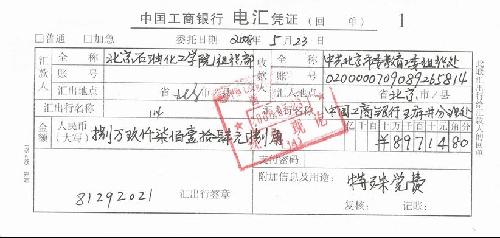 中国工商银行 电汇凭证（回 单） 1
□普通 □加急 委托日期 2008年 5月 23日
汇款人 全称 北京石油化工学院组织部 收款人 全称 中共北京市委教育工委组织处
账号 账号 0200000709089265814
汇出地点 省 北京 市/县 汇入地点 省 北京 市/县
汇出行名称 汇入行名称 中国工商银行王府井分理处
金额 人民币（大写） 捌万玖仟柒佰壹拾肆元捌角 亿千百十万千百十元角分 ¥8971480
支付密码
附加信息及用途： 特殊党费
81292021 汇出行签章
复核： 记账：
此联汇出行给汇款人的回单